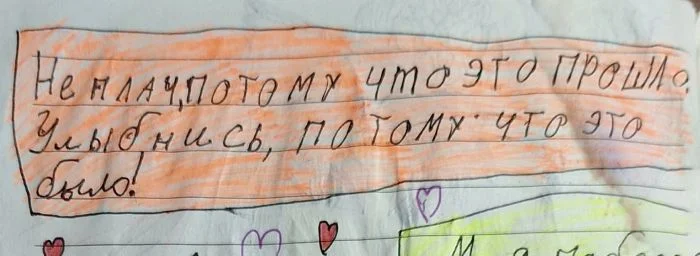 Не плач, потому что это прошло.
Улыбнись, потому что это
было!